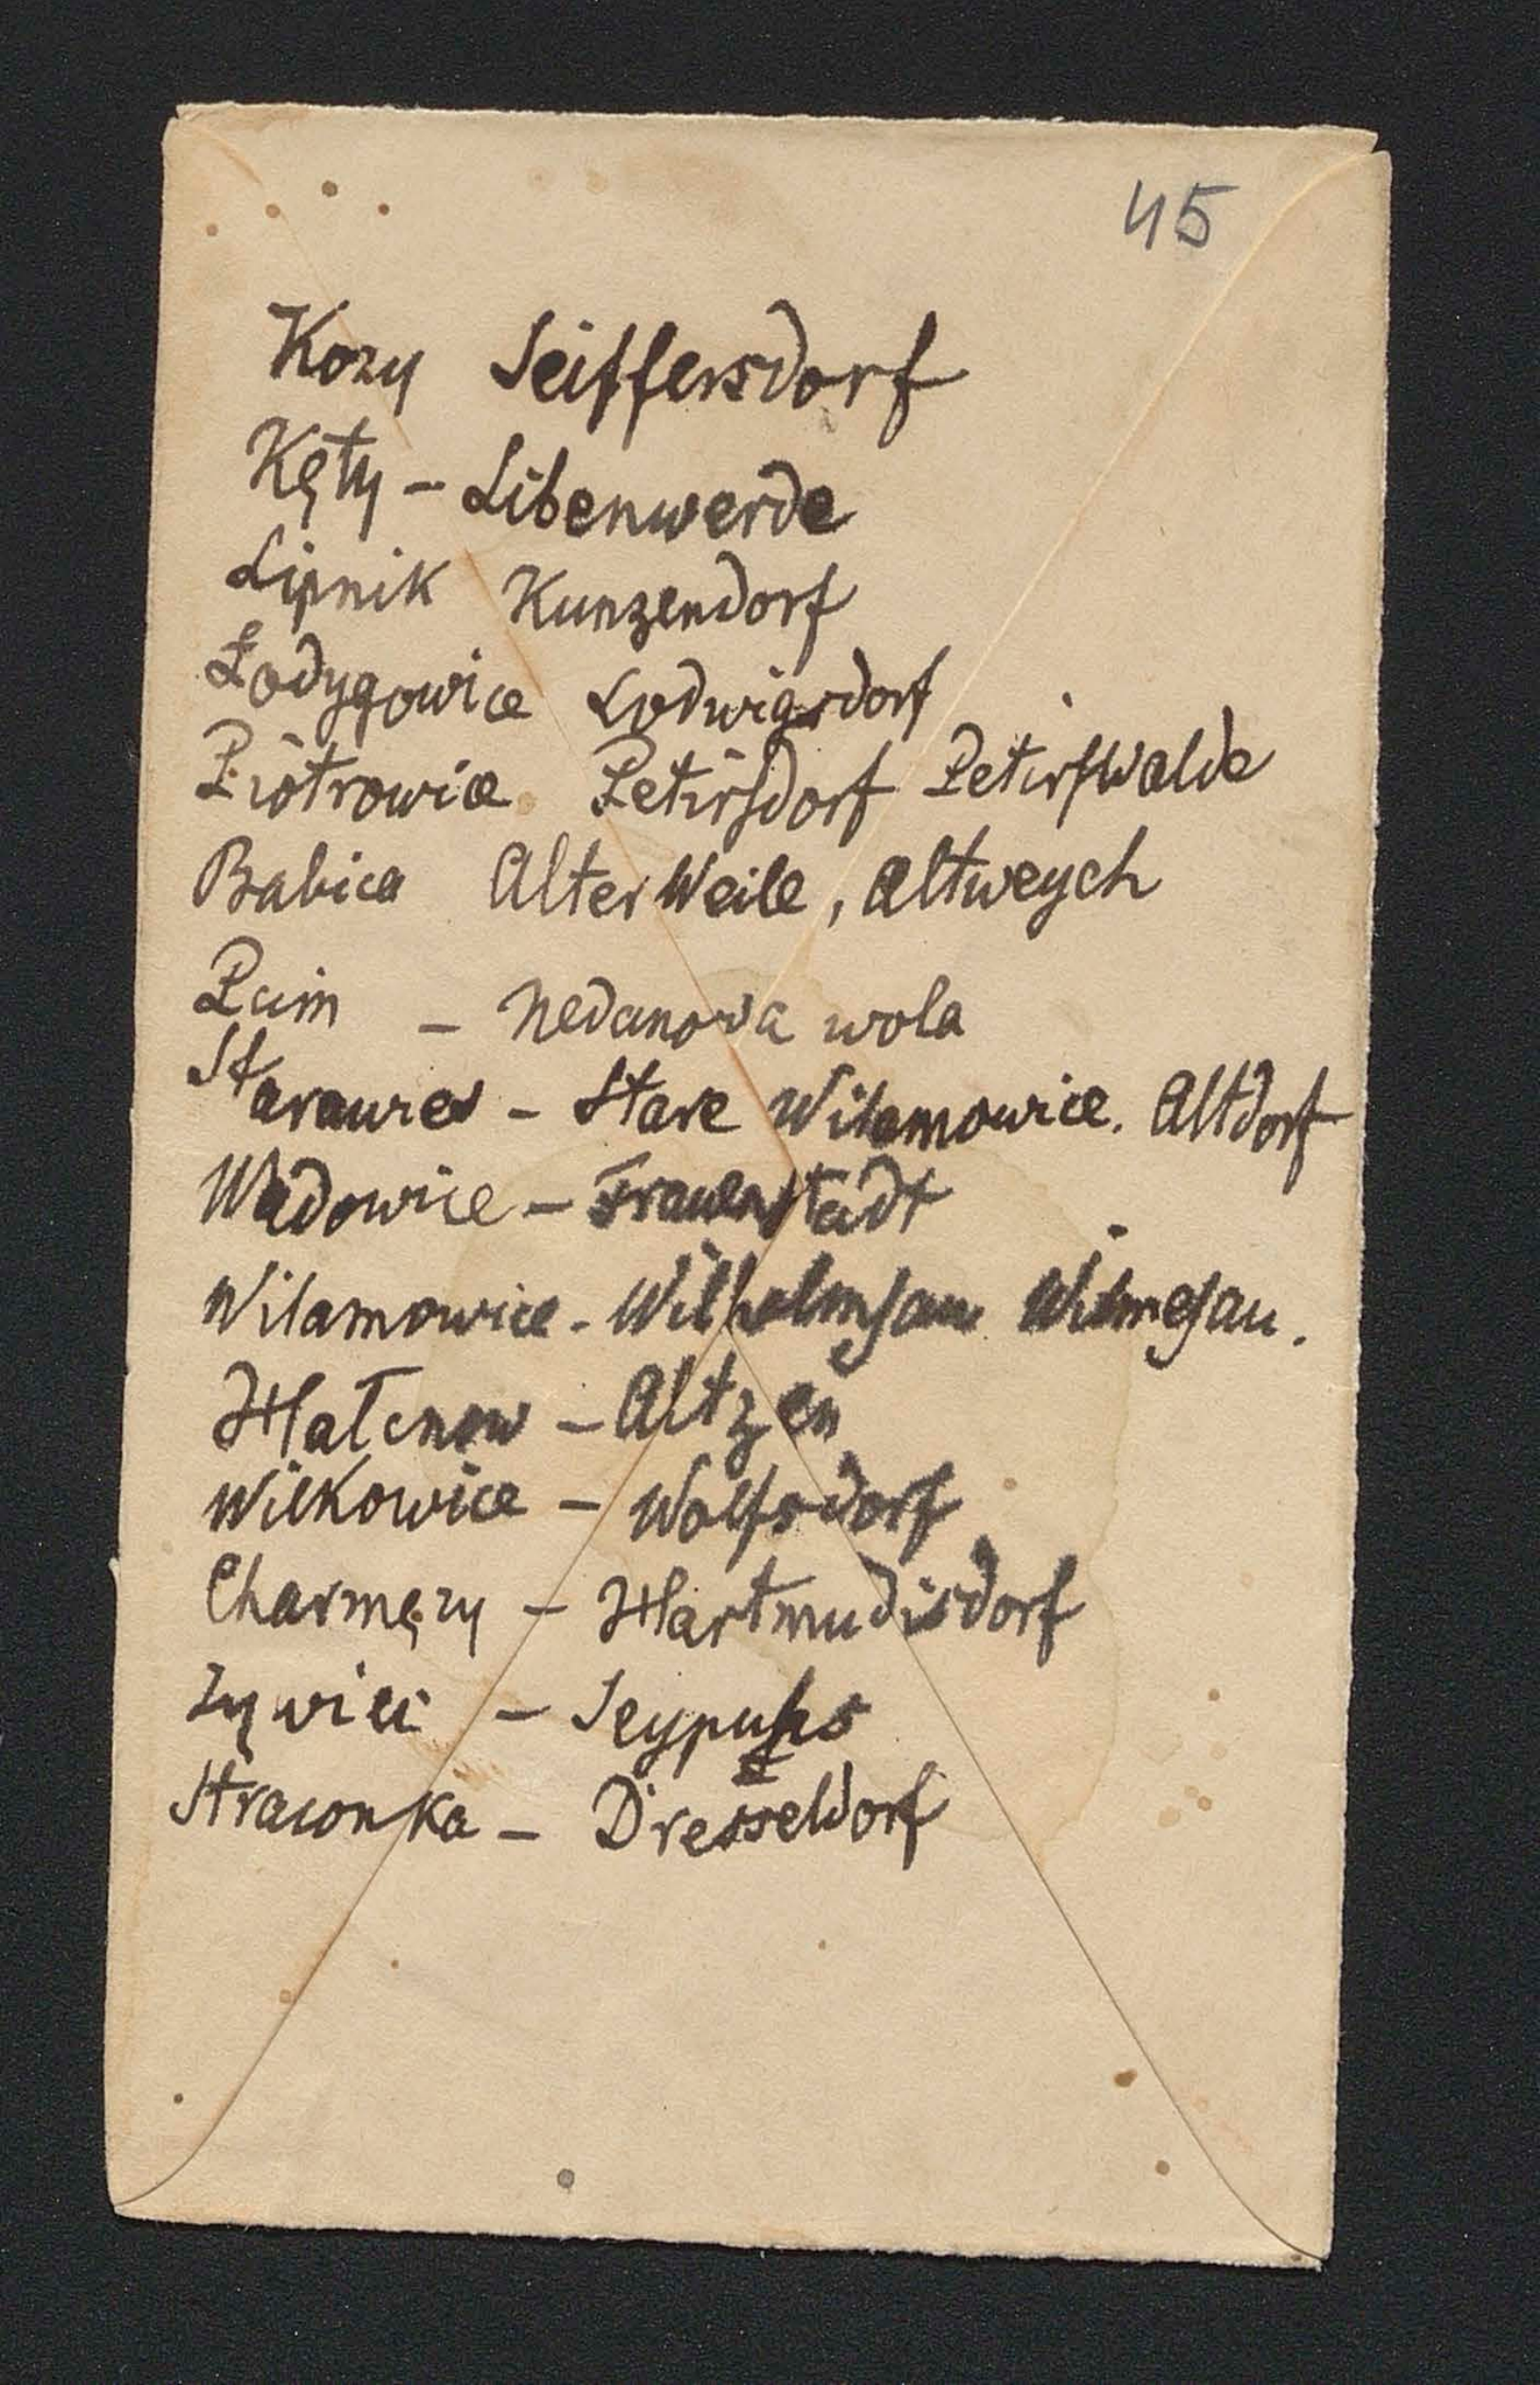 45
Kozy Seiffersdorf
Kęty - Libenwerde
Lipnik Kunzendorf
Łodygowice Lodwigsdorf
Piotrowice Petirsdorf Petirswalde
Babica Alter Weile, Altweych
Pcim - Nedanowa wola
Starawies - Stare Wilamowice. Altdorf
Wadowice - Frauenstadt
Wilamowice - Wilhelmsau Wilmesau.
Hałcnow - Altzen
Wilkowice - Wolfsdorf
Charmęzy - Hartmudisdorf
Zywiec - Seypuhs
Straconka - Dresseldorf